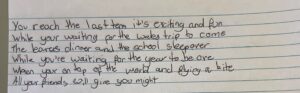 You reach the last term it's exciting and fun
While your waiting for the wales trip to come
The leavers dinner and the school sleepover
While you're waiting for the year to be over
When your on top of the world and flying a kite
All your friends will give you might